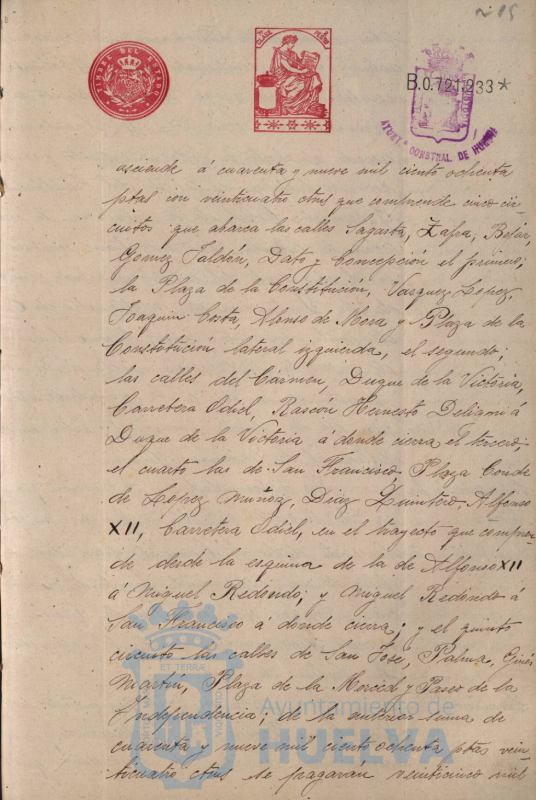 nº 15
TIMBRE DEL ESTADO
CLASE
B.0.721.233*
AYUNTº CONSTNAL. DE HUELVA
asciende á cuarenta y nueve mil ciento ochenta
ptas con veinticuatro ctms que comprende cinco cir-
cuitos que abarca las calles Sagasta, Zafra, Béjar,
Gomez Jaldón, Dato y Concepción el primero;
la Plaza de la Constitución, Vazquez López,
Joaquin Costa, Alonso de Mora y Plaza de la
Constitución lateral izquierda, el segundo;
las calles del Cármen, Duque de la Victoria,
Carretera Odiel, Rascón Hernesto Deligni á
Duque de la Victoria á donde cierra el tercero;
el cuarto las de San Francisco Plaza Conde
de López Muñoz, Díaz Quintero, Alfonso
XII, Carretera Odiel, en el trayecto que compren-
de desde la esquina de la de Alfonso XII
á Miguel Redondo; y Miguel Redondo á
San Francisco á donde cierra; y el quinto
circuito las calles de San José, Palma, Ginés
Martín, Plaza de la Merced y Paseo de la
Independencia; de la anterior suma de
cuarenta y nueve mil ciento ochenta ptas vein-
ticuatro ctms se pagarán veinticinco mil
ET TERRÆ
Ayuntamiento de
HUELVA